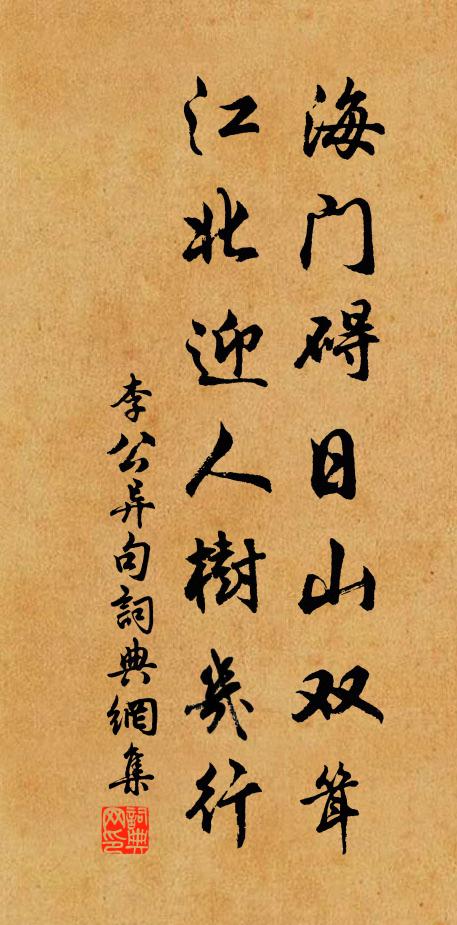 海门碍日山双耸
江北迎人樹幾行
李公异句詞典網集
詞典网印